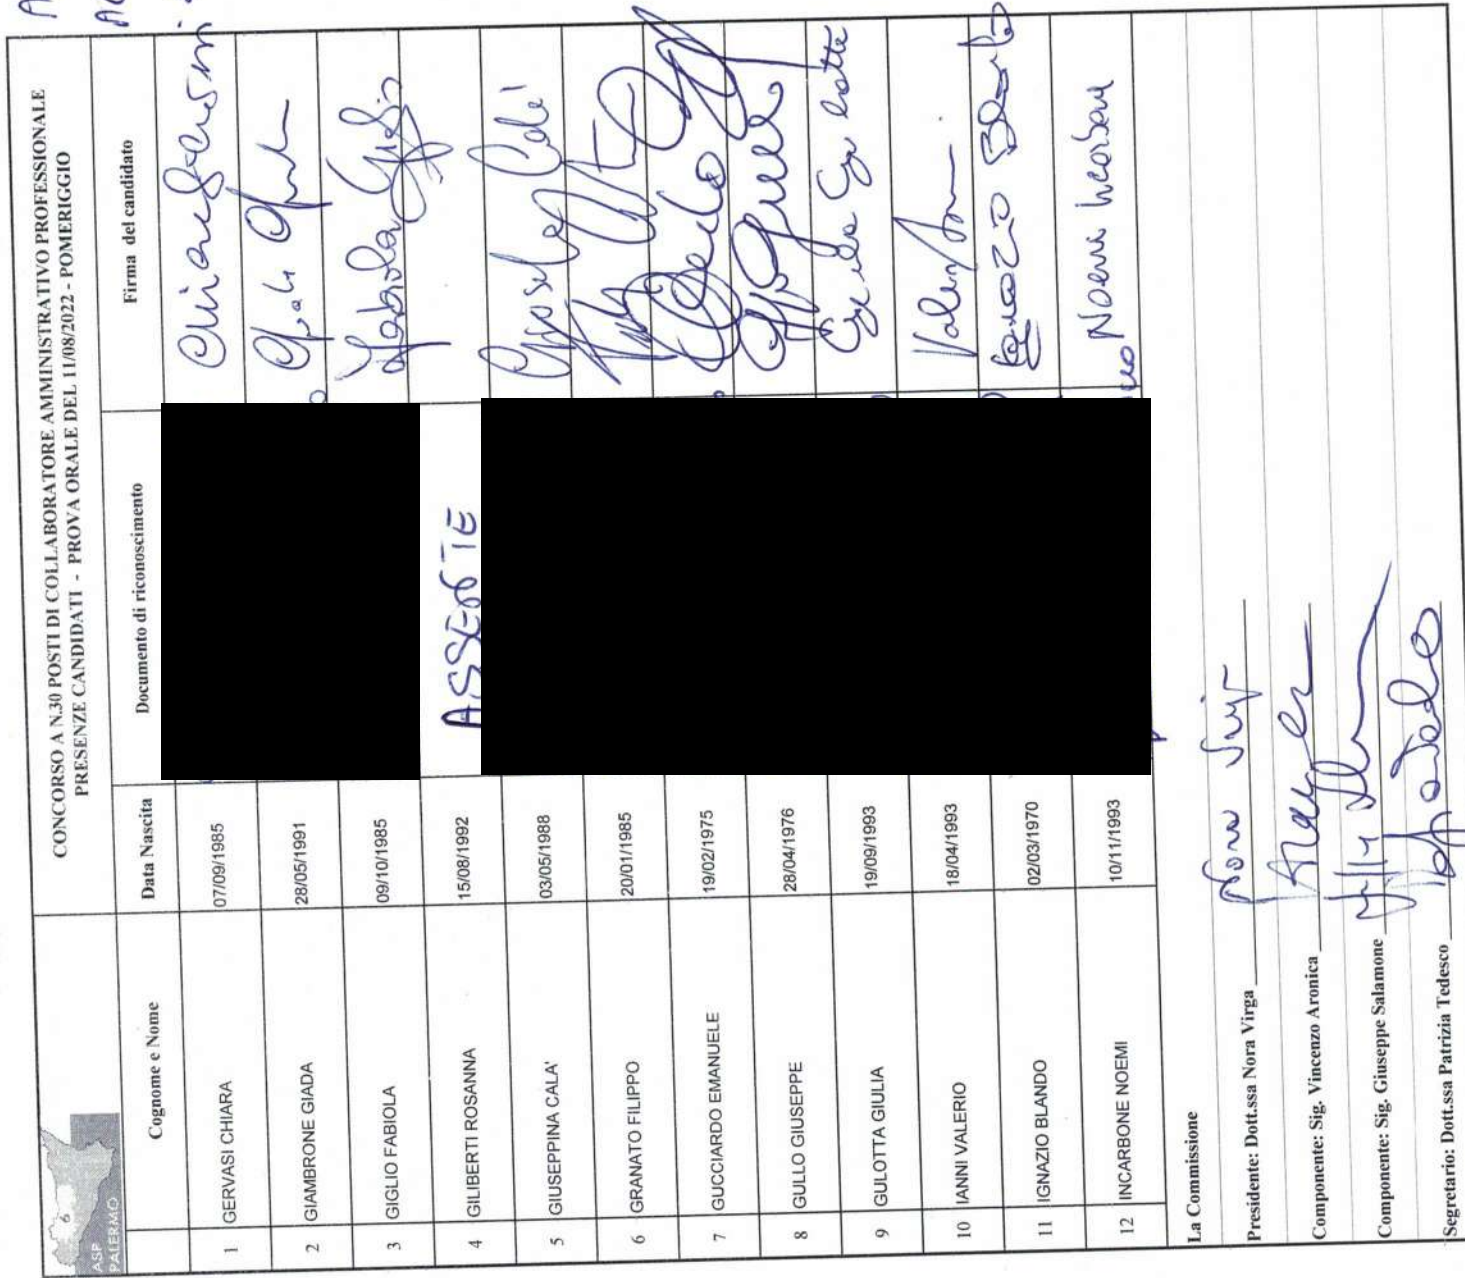 ASP
PALERMO
CONCORSO A N.30 POSTI DI COLLABORATORE AMMINISTRATIVO PROFESSIONALE
PRESENZE CANDIDATI - PROVA ORALE DEL 11/08/2022 - POMERIGGIO
Cognome e Nome Data Nascita Documento di riconoscimento Firma del candidato
1 GERVASI CHIARA 07/09/1985
2 GIAMBRONE GIADA 28/05/1991
3 GIGLIO FABIOLA 09/10/1985 Fabiola Giglio
4 GILIBERTI ROSANNA 15/08/1992 ASSENTE
5 GIUSEPPINA CALA' 03/05/1988
6 GRANATO FILIPPO 20/01/1985
7 GUCCIARDO EMANUELE 19/02/1975
8 GULLO GIUSEPPE 28/04/1976
9 GULOTTA GIULIA 19/09/1993
10 IANNI VALERIO 18/04/1993
11 IGNAZIO BLANDO 02/03/1970 Ignazio Blando
12 INCARBONE NOEMI 10/11/1993 Noemi Incarbone
La Commissione
Presidente: Dott.ssa Nora Virga Nora Virga
Componente: Sig. Vincenzo Aronica
Componente: Sig. Giuseppe Salamone
Segretario: Dott.ssa Patrizia Tedesco